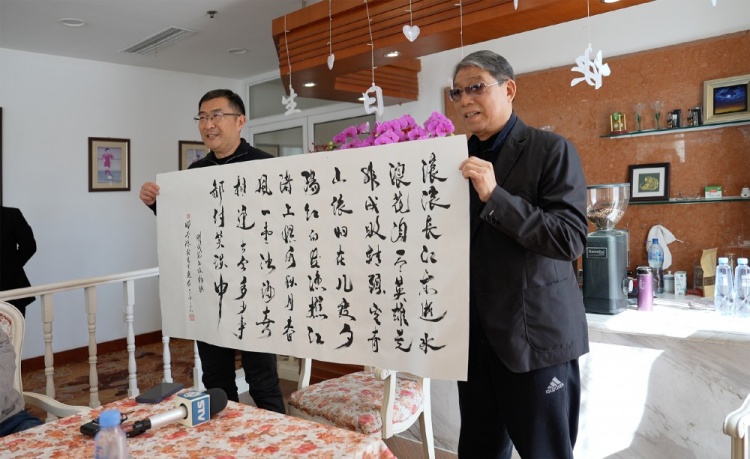 生日
滚滚长江东逝水
浪花淘尽英雄是
非成败转头空青
山依旧在几度夕
阳红白发渔樵江
渚上惯看秋月春
风一壶浊酒喜
相逢古今多少事
都付笑谈中
STV
adidas